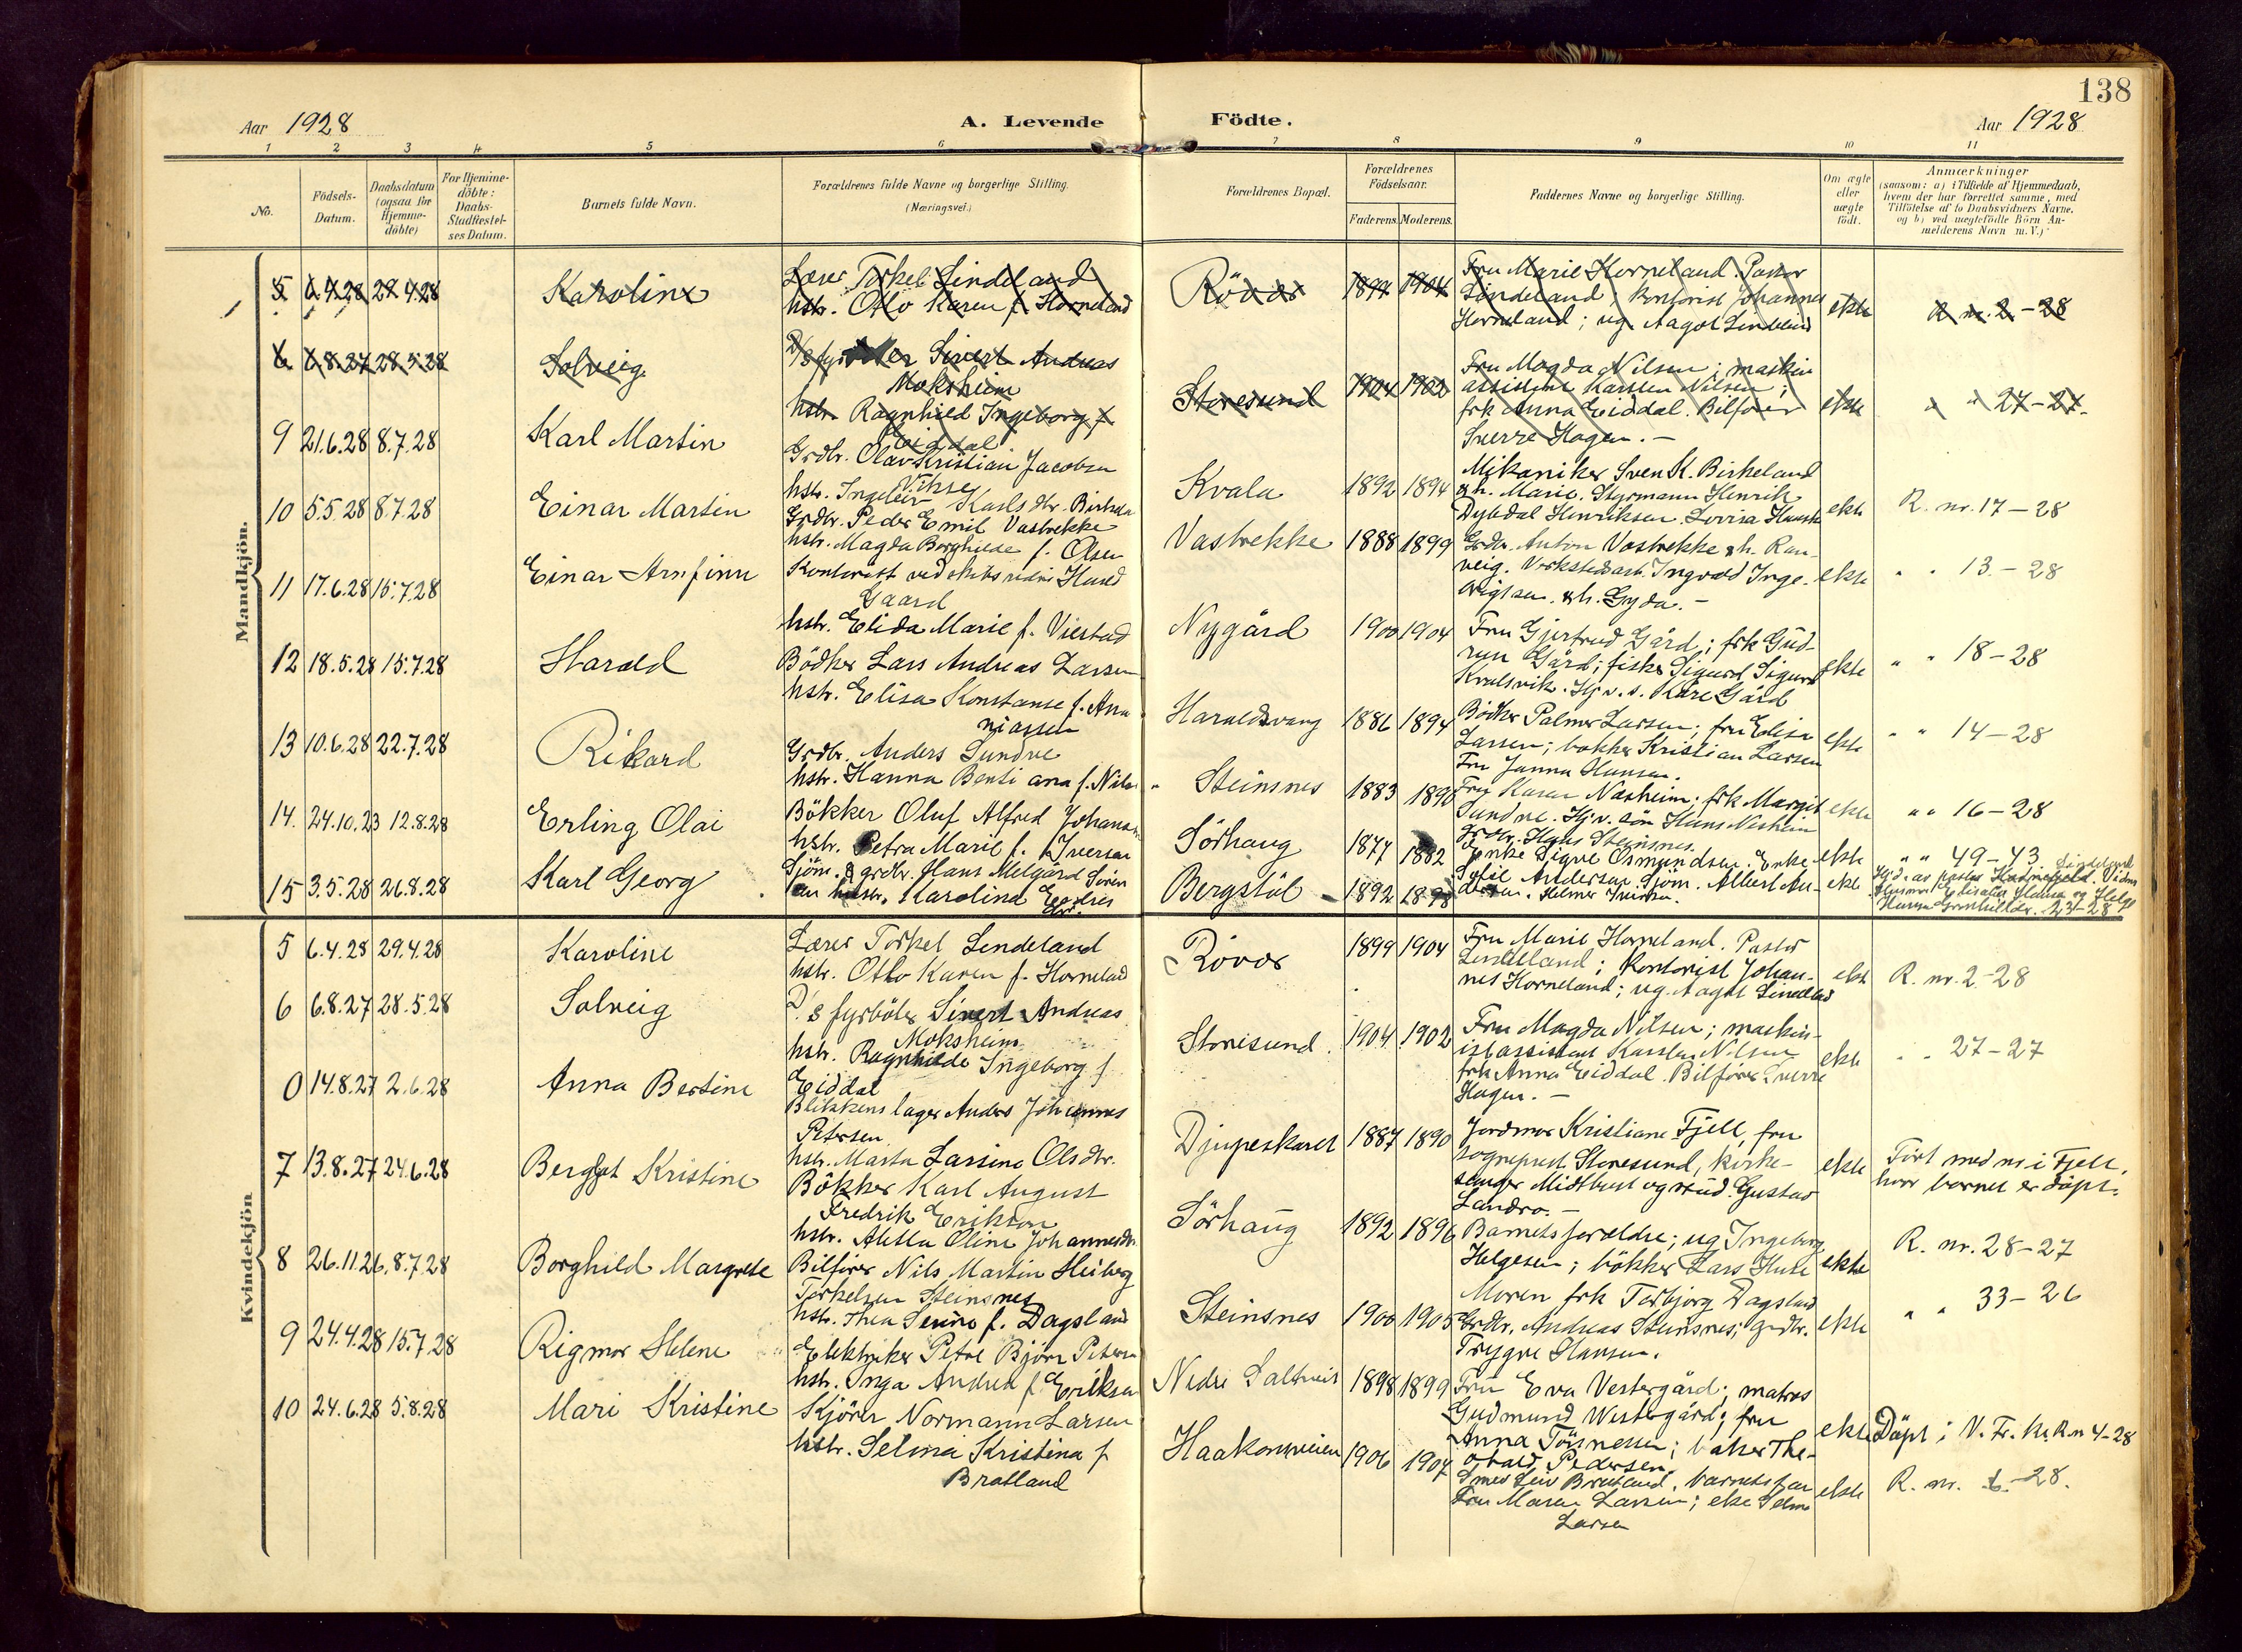 138
Aar 1928
A. Levende
Födte.
Aar 1928
1 2 3 4 5 6 7 8 9 10 11
No.
Födsels-
Datum.
Daabsdatum
(ogsaa for
Hjemme-
döbte)
For Hjemme-
döbte:
Daabs-
Stadfæstel-
ses Datum.
Barnets fulde Navn.
Forældrenes fulde Navne og borgerlige Stilling.
(Næringsvei.)
Forældrenes Bopæl.
Forældrenes
Födselsaar.
Faderens. Moderens.
Faddernes Navne og borgerlige Stilling.
Om ægte
eller
uægte
födt.
Anmærkninger
(saasom: a) i Tilfælde af Hjemmedaab,
hvem der har forrettet samme, med
Tilföielse af to Daabsvidners Navne,
og b) ved uægtefödte Börn An-
melderens Navn m. V.)
Mandkjön.
5 6.4.28 29.4.28
Karoline
Lærer Torkel Lindeland
hstr. Otto Karen f. Horneland
Rövær
1899 1904
Fru Marie Horneland. Pastor
Lindeland; kontorist Johannes
Horneland; ug. Aagot Lindeland
ekte
R nr. 2-28
6. 6.8.27 28.5.28
Solveig
D/s fyrböter Sivert Andreas
Moksheim
hstr. Ragnhild Ingeborg f
Eiddal
Storesund
1904 1902
Fru Magda Nilsen; maskin
assistent Karsten Nilsen;
frk Anna Eiddal. Bilförer
Sverre Hagen. -
ekte
" " 27-27.
9 21.6.28 8.7.28
Karl Martin
Grdbr. Olav Kristian Jacobsen
Vikse
hstr. Ingeleiv Karlsdtr. Birkeland
Kvala
1892 1894
Mikaniker Sven K. Birkeland
& h. Marie. Styrmann Henrik
Dybdal Henriksen. Lovisa
ekte
R. nr. 17-28
10 5.5.28 8.7.28
Einar Martin
Grdbr. Peder Emil Vastrekke
hstr. Magda Borghilde f. Olsen
Vastrekke
1888 1899
Grdbr. Anton Vastrekke & h. Ran-
veig. Verkstedsarb. Ingvald Inge-
brigtsen. & h. Gyda. -
ekte
" " 13-28
11 17.6.28 15.7.28
Einar Arnfinn
Kontorist ved skibsrederi
Gaard
hstr. Elida Marie f. Viestad
Nygård
1900 1904
Fru Gjertrud Gård; frk Gud-
run Gård; fisker Sigurd Sigurd
Kvalsvik. Hj.v. s. Kåre Gård
ekte
" " 18-28
12 18.5.28 15.7.28
Harald
Bödker Lars Andreas Larsen
hstr. Elisa Konstanse f. Ana
niassen
Haraldsvang
1886 1894
Bödker Palmer Larsen; fru Elisa
Larsen; bökker Kristian Larsen
Fru Janna Hansen.
ekte
" " 14-28
13 10.6.28 22.7.28
Rikard
Grdbr. Anders Sundve
hstr. Hanna Bentiana f. Nils
Steinsnes
1883 1890
Fru Karen Næsheim; frk Margit
Sundve. Hj.v. sön Hans Nesheim
grdbr. Hans Steinsnes.
ekte
" " 16-28
14. 24.10.23 12.8.28
Erling Olai
Bökker Oluf Alfred Johansen
hstr. Petra Marie f. Iversen
Sörhaug
1877 1882
Enke Signe Osmundsen. Enke
Sylvi Andersen. Sjöm. Albert An-
dersen. Helmer Iversen.
ekte
" " 49-43
15 3.5.28 26.8.28
Karl Georg
Sjöm. & grdbr. Hans Melgård Sören
sen hustr. Karolina Endres
dtr.
Bergstöl
1892 1898
ekte
Hj.d. av pastor Lindeland. Vidner
23-28
Kvindekjön
5 6.4.28 29.4.28
Karoline
Lærer Torkel Lindeland
hstr. Otto Karen f. Horneland
Rövær
1899 1904
Fru Marie Horneland. Pastor
Lindeland; kontorist Johan-
nes Horneland; ug. Aagot Lindeland
ekte
R. nr. 2-28
6 6.8.27 28.5.28
Solveig
D/s fyrböter Sivert Andreas
Moksheim
hstr. Ragnhilde Ingeborg f
Eiddal
Storesund.
1904 1902
Fru Magda Nilsen; maskin-
istassistent Karsten Nilsen
frk Anna Eiddal. Bilförer Sverre
Hagen. -
ekte
" " 27-27
0 14.8.27 2.6.28
Anna Bertine
Blikkenslager Anders Johannes
Petersen
hstr. Marta Larsine Olsdtr.
Djupeskaret
1887 1890
Jordmor Kristiane Fjell, fru
sogneprest Storesund, kirke-
sanger Midtbust og stud. Gustav
Landro. -
ekte
Fört med nr i Fjell,
hvor barnet er döpt.
7 13.8.27 24.6.28
Bergljot Kristine
Bökker Karl August
Fredrik Erikson
hstr. Aletta Oline Johannesdtr.
Sörhaug
1892 1896
Barnets foreldre; ug Ingeborg
Helgesen; bökker Lars Huse
ekte
R. nr. 28-27
8 26.11.26. 8.7.28
Borghild Margrete
Bilförer Nils Martin Heiberg
Torkelsen Steinsnes
hstr. Thea Serine f. Dagsland
Steinsnes
1900 1905
Moren frk Torbjörg Dagsland
Grdbr. Andreas Steinsnes; grdbr.
Trygve Hansen.
ekte
" " 33-26
9 24.4.28 15.7.28
Rigmor Helene
Elektriker Petre Björn Petersen
hstr. Inga Andrea f. Eriksen
Nedre Saltveit
1898 1899
Fru Eva Vestergård; matros
Gudmund Westergård; fru
Anna Tönnessen; baker The-
obald Pedersen.
ekte
Döpt i V. Fr. ki. R. n 4-28
10 24.6.28 5.8.28
Mari Kristine
Kjörer Normann Larsen
hstr. Selma Kristina f
Bratland
Haakonsveien
1906 1907
Smed Leiv Bratland, barnets far
Fru Maren Larsen; else Selma
Larsen
ekte
R. nr. 6-28.